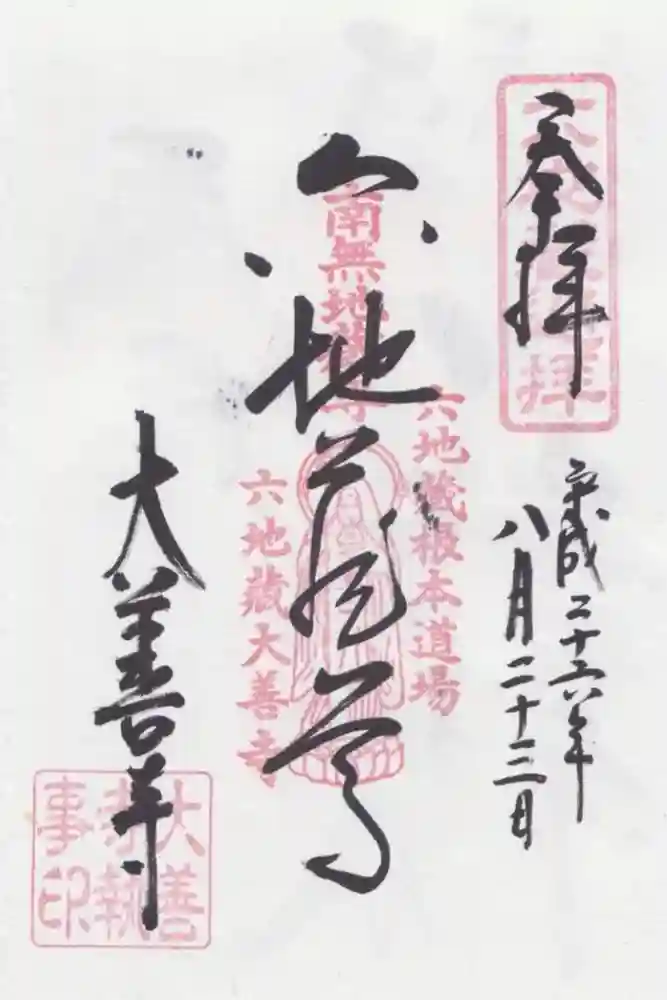 奉拝
平成二十六年
八月二十三日
六地蔵尊
南無地
六地蔵根本道場
六地藏大善寺
大善寺
大善寺執事印